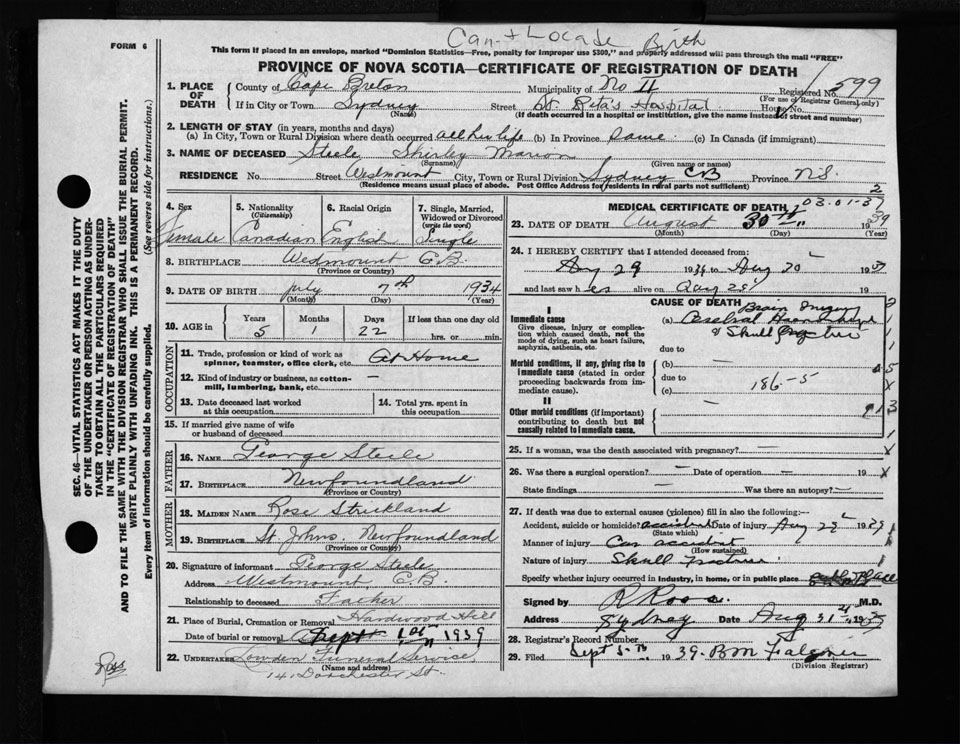 Can't Locate Birth
FORM 6
This form if placed in an envelope, marked "Dominion Statistics—Free, penalty for improper use $300," and properly addressed will pass through the mail "FREE"
PROVINCE OF NOVA SCOTIA—CERTIFICATE OF REGISTRATION OF DEATH
1. PLACE OF DEATH
County of Cape Breton Municipality of No 11 Registered No. 599
(For use of Registrar General only)
If in City or Town Sydney Street St. Rita's Hospital House No.
(Name) (If death occurred in a hospital or institution, give the name instead of street and number)
2. LENGTH OF STAY (in years, months and days)
(a) In City, Town or Rural Division where death occurred all her life (b) In Province Same. (c) In Canada (if immigrant)
3. NAME OF DECEASED Steele Shirley Marion
(Surname) (Given name or names)
RESIDENCE No. Street Westmount City, Town or Rural Division Sydney CB Province N.S.
(Residence means usual place of abode. Post Office Address for residents in rural parts not sufficient)
4. Sex 5. Nationality (Citizenship) 6. Racial Origin 7. Single, Married, Widowed or Divorced (write the word)
Female Canadian English Single
8. BIRTHPLACE Westmount C.B.
(Province or Country)
9. DATE OF BIRTH July 7th 1934
(Month) (Day) (Year)
10. AGE in Years Months Days If less than one day
5 1 22 hrs. or min.
OCCUPATION
11. Trade, profession or kind of work as spinner, teamster, office clerk, etc. At Home
12. Kind of industry or business, as cotton-mill, lumbering, bank, etc. —
13. Date deceased last worked at this occupation 14. Total yrs. spent in this occupation
15. If married give name of wife or husband of deceased
FATHER
16. NAME George Steele
17. BIRTHPLACE Newfoundland
(Province or Country)
MOTHER
18. MAIDEN NAME Rose Strickland
19. BIRTHPLACE St. Johns. Newfoundland
(Province or Country)
20. Signature of informant George Steele
Address Westmount, C.B.
Relationship to deceased Father
21. Place of Burial, Cremation or Removal Hardwood Hill
Date of burial or removal Sept 1st 1939
22. UNDERTAKER Lowden Funeral Service
(Name and address)
141 Dorchester St.
MEDICAL CERTIFICATE OF DEATH
2
03-01-39
23. DATE OF DEATH August 30th 1939
(Month) (Day) (Year)
24. I HEREBY CERTIFY that I attended deceased from:
Aug 29 1939 to Aug 30 1939
and last saw her alive on Aug 29
CAUSE OF DEATH
I
Immediate cause
Give disease, injury or complication which caused death, not the mode of dying, such as heart failure, asphyxia, asthenia, etc.
(a) Brain Injury
Cerebral Hemorrhage
& Skull Fracture
due to
Morbid conditions, if any, giving rise to immediate cause (stated in order proceeding backwards from immediate cause).
(b) —
due to
(c) 186-5
II
Other morbid conditions (if important) contributing to death but not causally related to immediate cause.
25. If a woman, was the death associated with pregnancy? —
26. Was there a surgical operation? — Date of operation —
State findings — Was there an autopsy? —
27. If death was due to external causes (violence) fill in also the following:—
Accident, suicide or homicide? accident Date of injury Aug 29 1939
(State which)
Manner of injury Car accident
(How sustained)
Nature of injury Skull Fracture
Specify whether injury occurred in industry, in home, or in public place Public Place
Signed by R Ross M.D.
Address Sydney Date Aug 31st 1939
28. Registrar's Record Number
29. Filed Sept 5th 1939.
(Division Registrar)
SEC. 46—VITAL STATISTICS ACT MAKES IT THE DUTY OF THE UNDERTAKER OR PERSON ACTING AS UNDERTAKER TO OBTAIN ALL THE PARTICULARS REQUIRED IN THE "CERTIFICATE OF REGISTRATION OF DEATH" AND TO FILE THE SAME WITH THE DIVISION REGISTRAR WHO SHALL ISSUE THE BURIAL PERMIT.
WRITE PLAINLY WITH UNFADING INK. THIS IS A PERMANENT RECORD.
Every item of information should be carefully supplied. (See reverse side for instructions.)
Ross